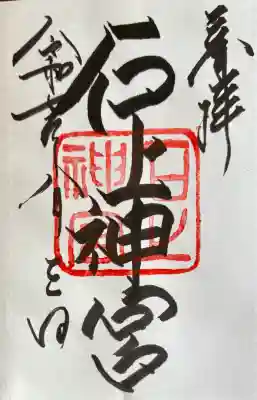 奉拝
石上神宮
石上
神宮
令和 八月 日